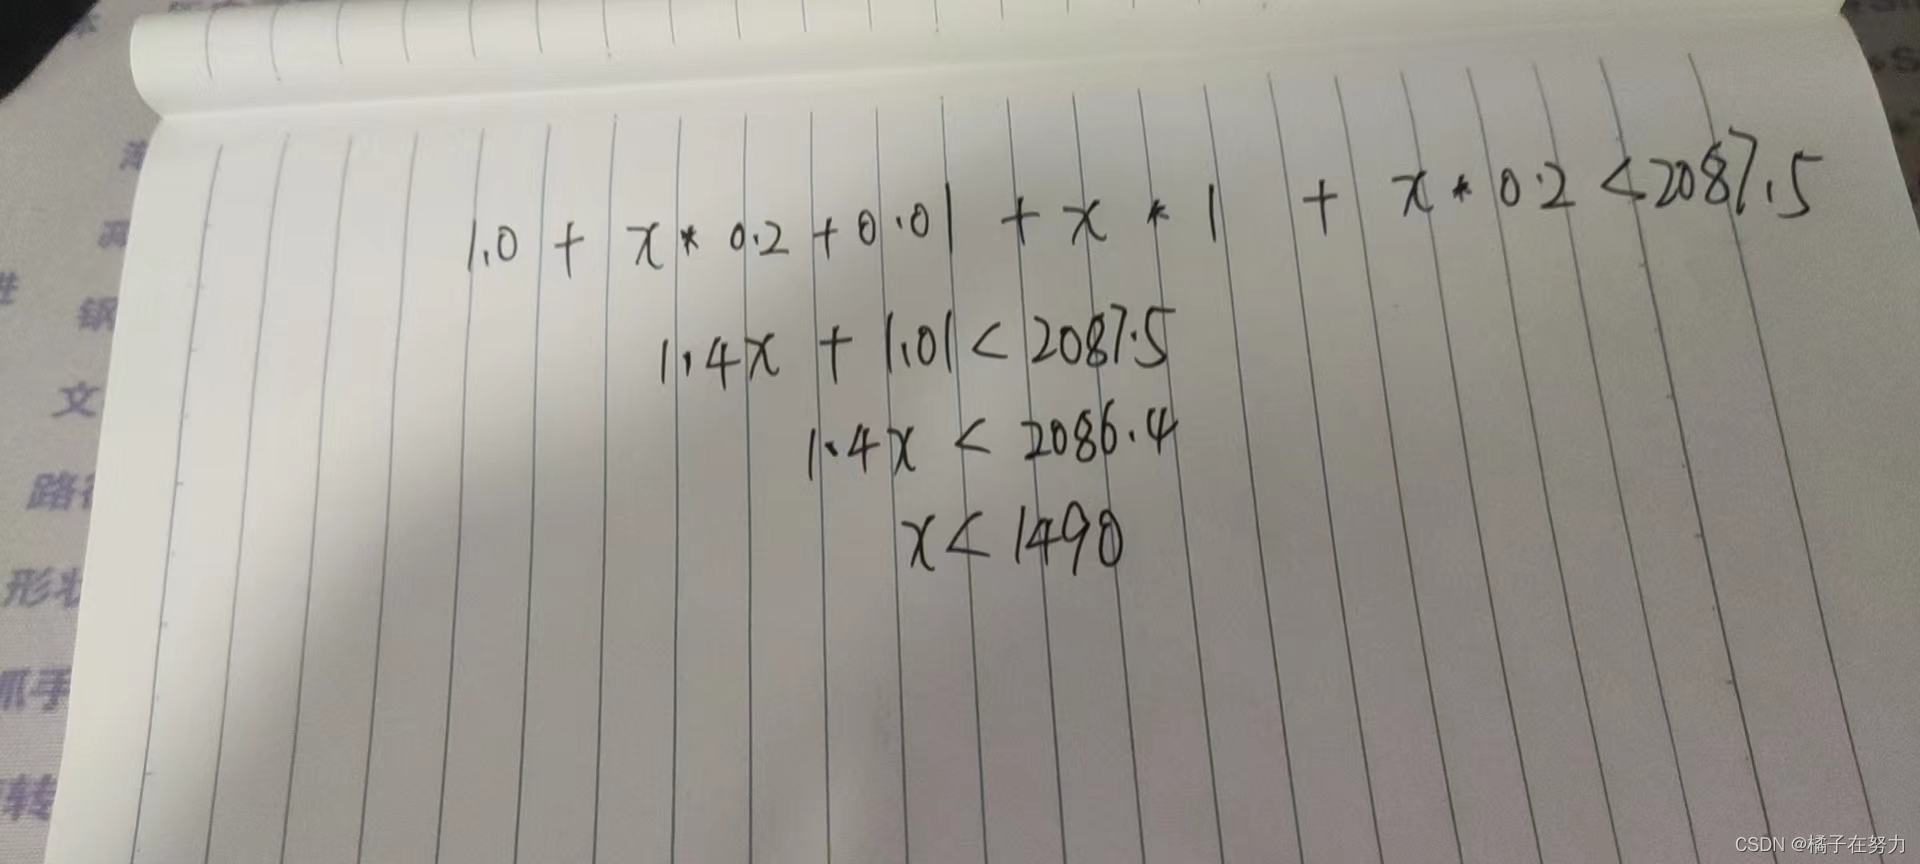 1.0 + x * 0.2 + 0.01 + x * 1 + x * 0.2 < 2087.5
1.4x + 1.01 < 2087.5
1.4x < 2086.4
x < 1490
文
形状
抓手
转
CSDN @橘子在努力